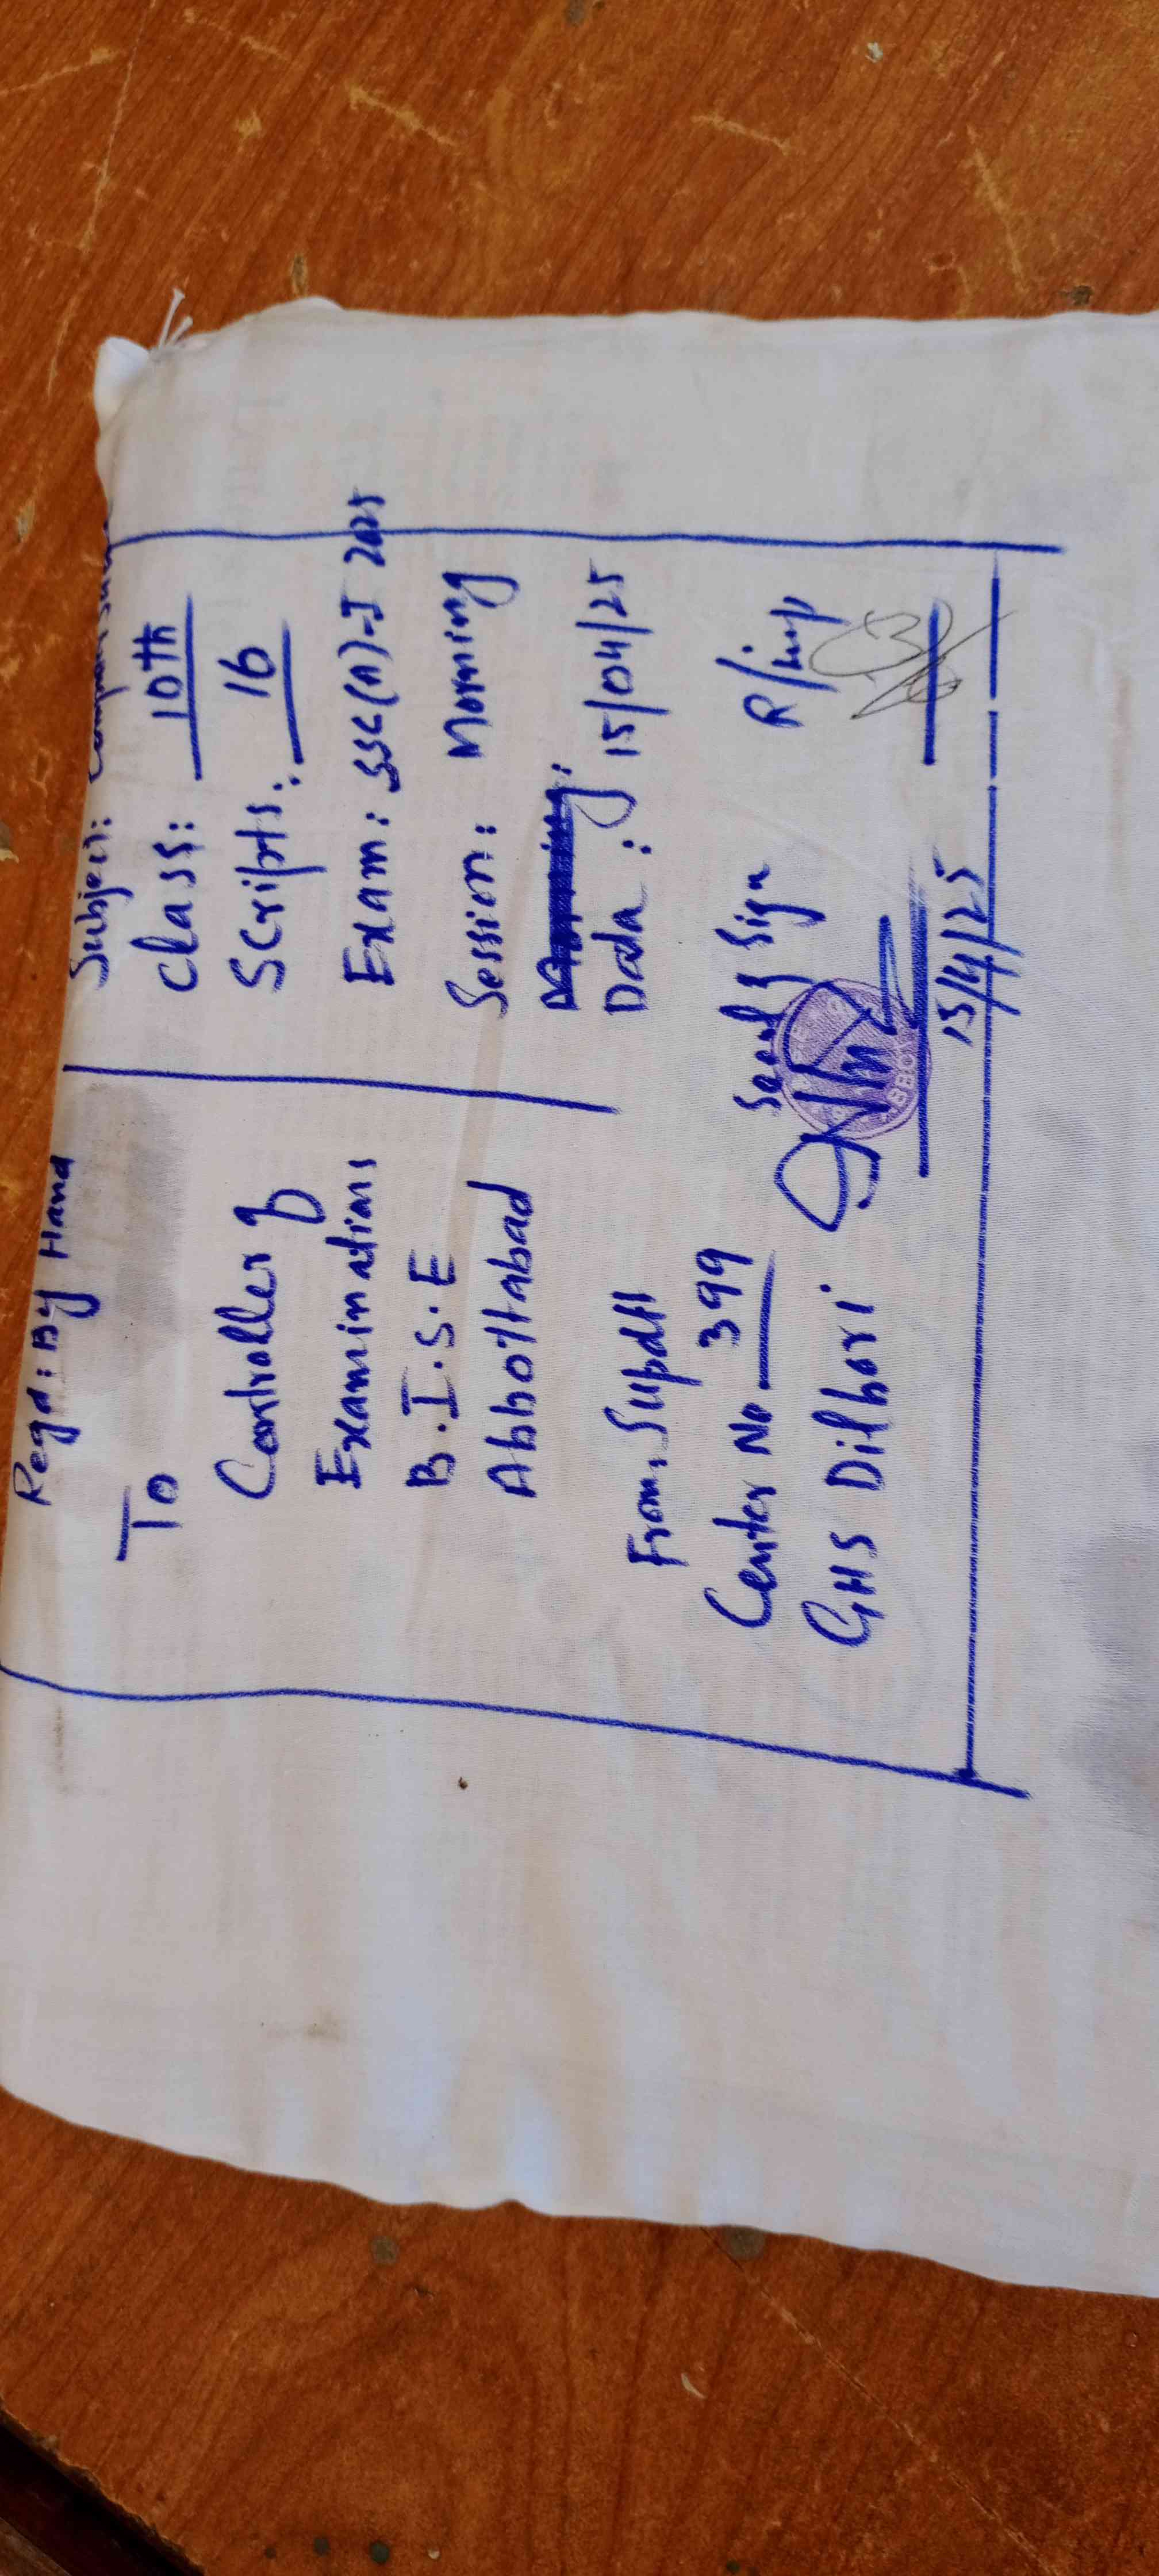 Regd: By Hand
To
Controller of
Examinations
B.I.S.E
Abbottabad
From, Supdtt
Center No 399
GHS Dilbori
Subject: Computer
Class: 10th
Scripts: 16
Exam: SSC(A)-I 2025
Session: Morning
Date: 15/04/25
Seal & Sign
R/insp
15/4/25